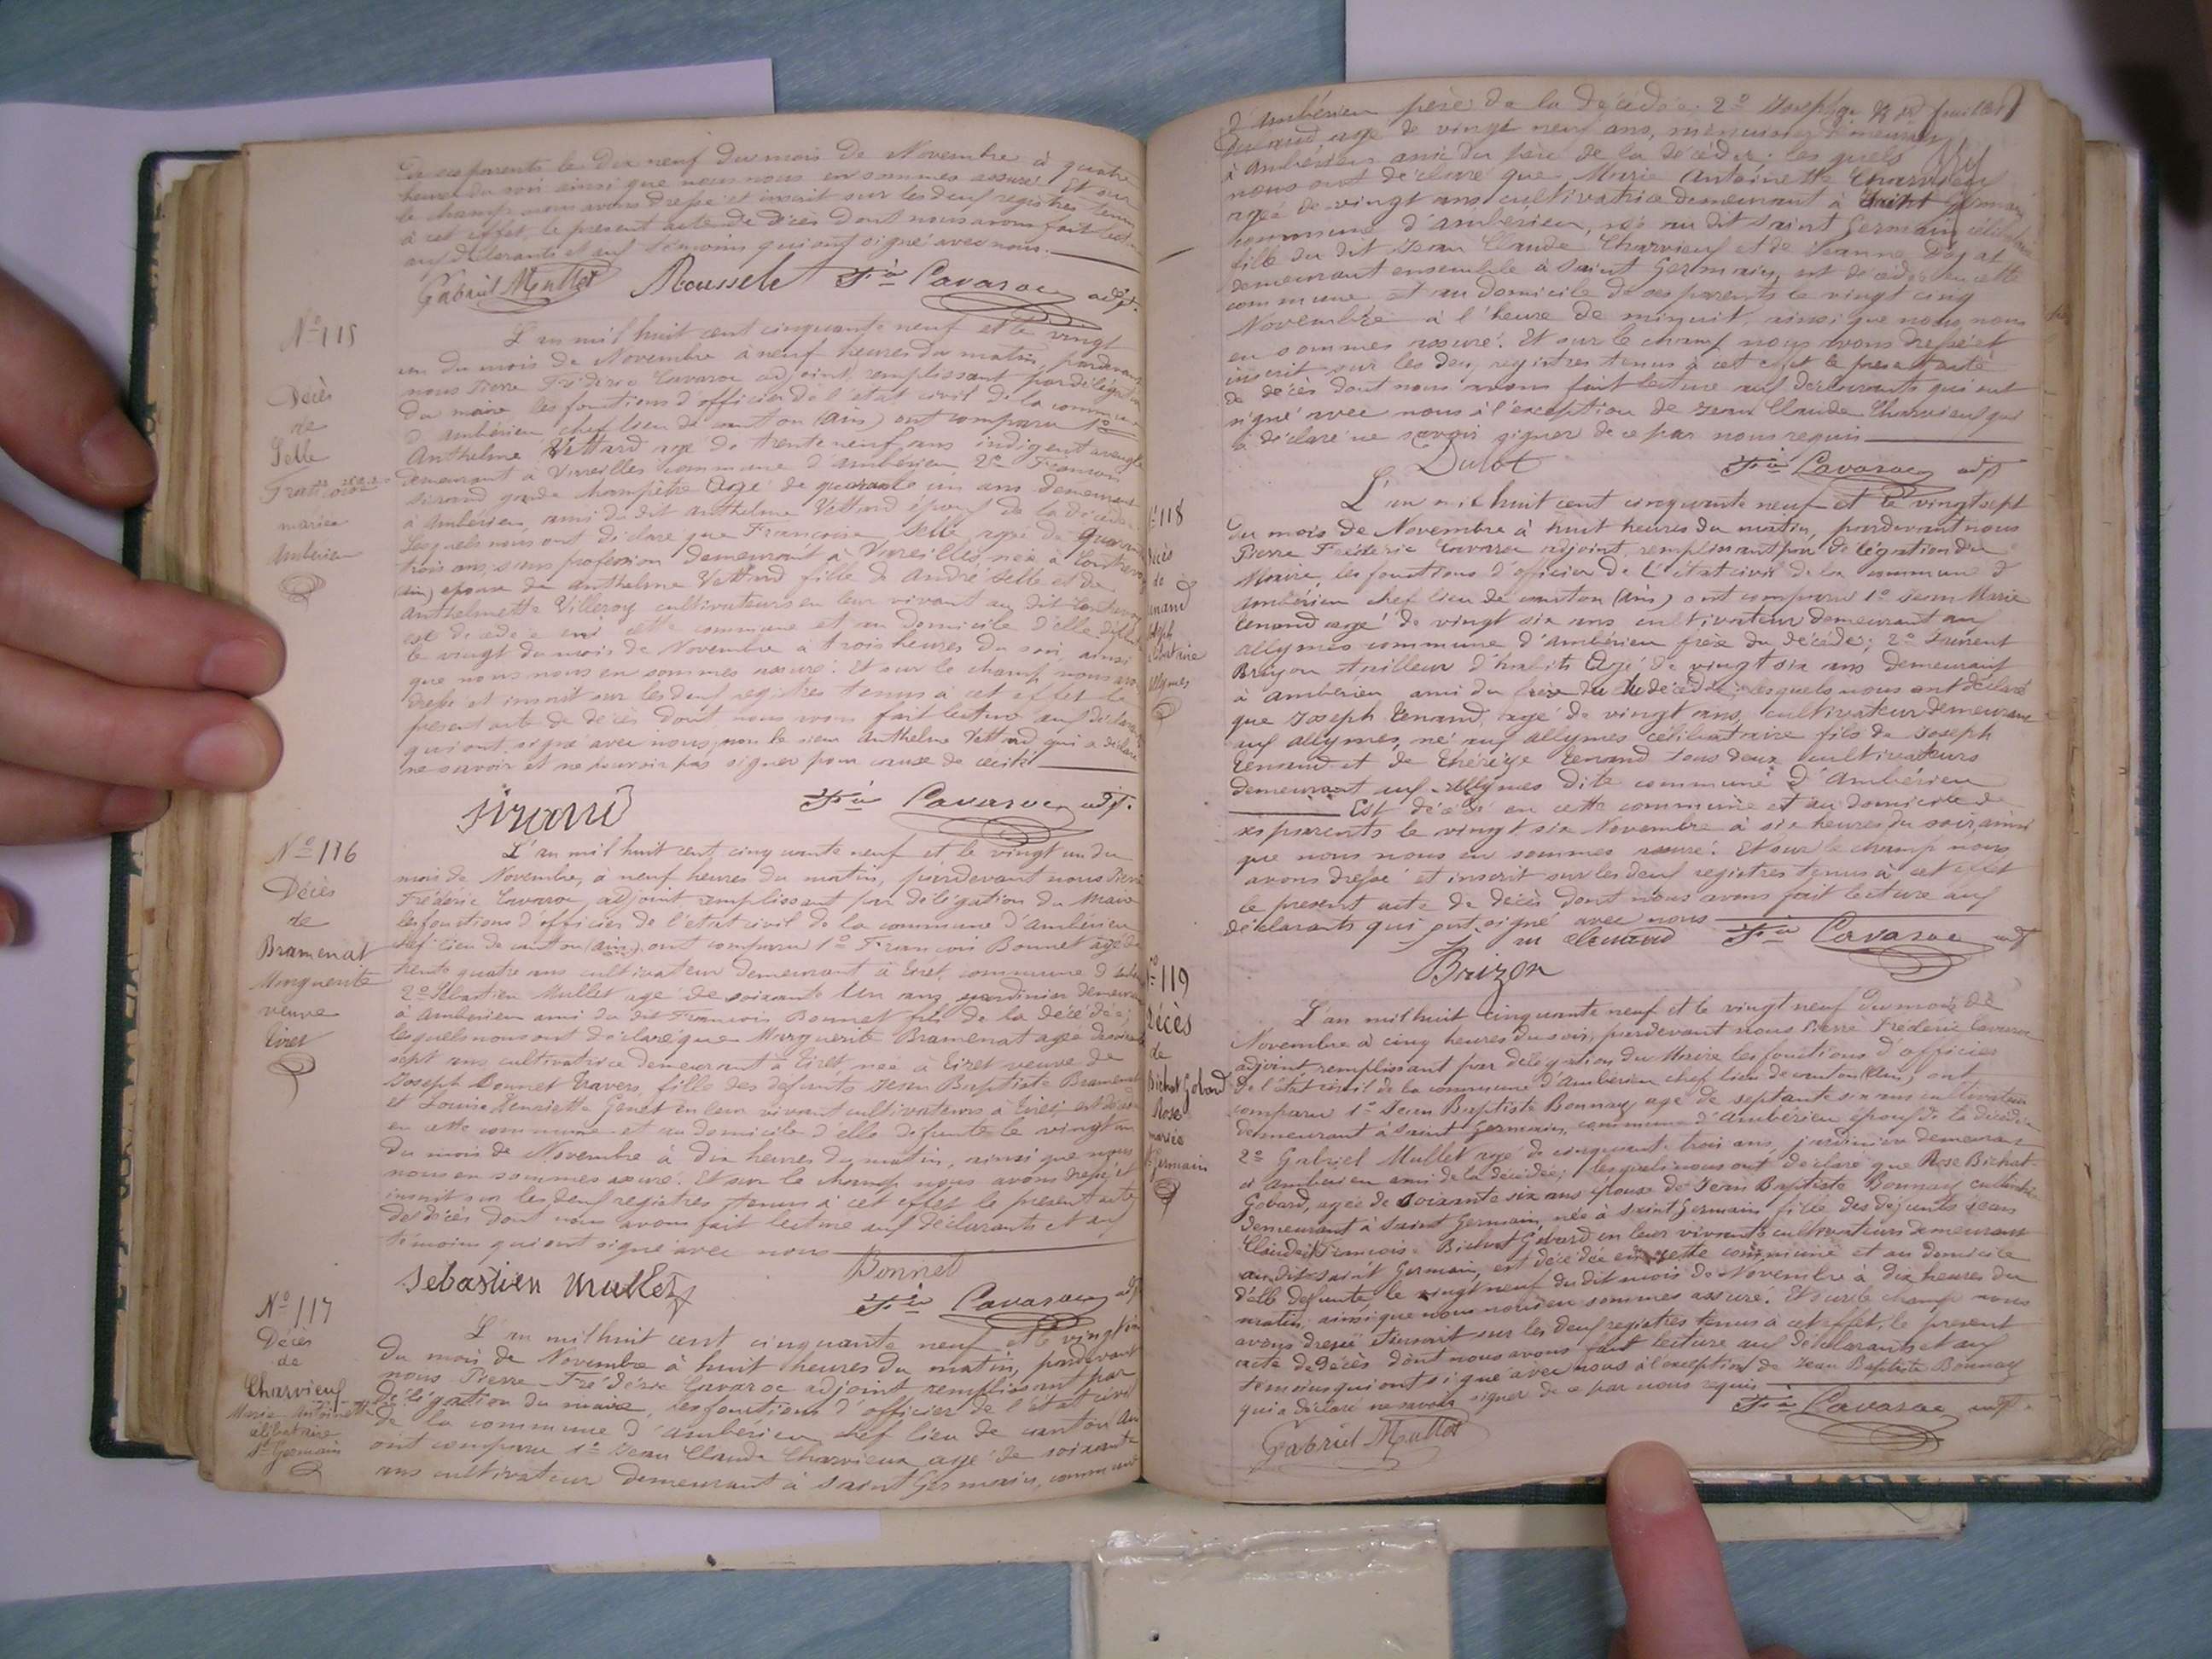 de ses parents le dix neuf du mois de Novembre à quatre
heures du soir ainsi que nous nous en sommes assuré. Et sur
le champ nous avons dressé et inscrit sur les deux registres tenus
à cet effet, le présent acte de décès dont nous avons fait lecture
aux déclarants et aux témoins qui ont signé avec nous.
Gabriel Mullet Cavaroc adjt.
N° 115
Décès
de
Selle
Françoise
mariée
Ambérieu
L'an mil huit cent cinquante neuf et le vingt
un du mois de Novembre à neuf heures du matin, pardevant
nous Pierre Frédéric Cavaroc adjoint, remplissant par délégation
du maire, les fonctions d'officier de l'état civil de la commune
d'Ambérieu chef lieu de canton (Ain) ont comparu 1°
Anthelme Vettard agé de trente neuf ans indigent aveugle
demeurant à Vareilles commune d'ambérieu 2° François
Sirand garde champêtre Agé de quarante un ans demeurant
à Ambérieu, ami du dit Anthelme Vettard époux de la décédée
Lesquels nous ont déclaré que Françoise Selle agée de quarante
trois ans, sans profession demeurant à Vareilles, née à
(Ain) épouse de Anthelme Vettard fille de André Selle et de
Anthelmette Villeroy cultivateurs en leur vivant au dit
est décédée en cette commune et au domicile d'elle défunte
le vingt du mois de Novembre à trois heures du soir, ainsi
que nous nous en sommes assuré. Et sur le champ nous avons
dressé et inscrit sur les deux registres tenus à cet effet le
présent acte de décès dont nous avons fait lecture aux déclarants
qui ont signé avec nous, non le sieur Anthelme Vettard qui a déclaré
ne savoir et ne pouvoir pas signer pour cause de cécité
Sirand Cavaroc adjt.
N° 116
Décès
de
Bramenat
Marguerite
veuve
Tiret
L'an mil huit cent cinquante neuf et le vingt un du
mois de Novembre, à neuf heures du matin, pardevant nous Pierre
Frédéric Cavaroc, adjoint remplissant par délégation du Maire
les fonctions d'officier de l'état civil de la commune d'Ambérieu
chef lieu de canton (Ain), ont comparu 1° François Bonnet agé de
trente quatre ans cultivateur demeurant à Tiret, commune d'
2° Sébastien Mullet agé de soixante un ans, jardinier demeurant
à Ambérieu ami du dit François Bonnet fils de la décédée;
lesquels nous ont déclaré que Marguerite Bramenat agée de
sept ans cultivatrice demeurant à Tiret, née à Tiret veuve de
Joseph Bonnet Travers, fille des défunts Jean Baptiste Bramenat
et Louise Henriette Genet en leur vivant cultivateurs à Tiret, est décédée
en cette commune et au domicile d'elle défunte le vingt un
du mois de Novembre à dix heures du matin, ainsi que nous
nous en sommes assuré. Et sur le champ nous avons dressé et
inscrit sur les deux registres tenus à cet effet le présent acte
de décès dont nous avons fait lecture aux déclarants et aux
témoins qui ont signé avec nous
Sebastien Mullet Bonnet
Cavaroc adjt
N° 117
Décès
de
Charvieux
Marie Antoinette
célibataire
St Germain
L'an mil huit cent cinquante neuf et le vingt six
du mois de Novembre à huit heures du matin, pardevant
nous Pierre Frédéric Cavaroc adjoint remplissant par
délégation du maire, les fonctions d'officier de l'état civil
de la commune d'Ambérieu chef lieu de canton Ain
ont comparu 1° Jean Claude Charvieux agé de soixante
ans cultivateur demeurant à Saint Germain, commune
d'Ambérieu père de la décédée. 2° Joseph
agé de vingt neuf ans, menuisier demeurant
à Ambérieu ami du père de la décédée; les quels
nous ont déclaré que Marie Antoinette Charvieux
agée de vingt ans cultivatrice demeurant à Saint Germain
commune d'Ambérieu, née au dit Saint Germain célibataire
fille du dit Jean Claude Charvieux et de Jeanne
demeurant ensemble à Saint Germain, est décédée en cette
commune et au domicile de ses parents le vingt cinq
Novembre à l'heure de minuit, ainsi que nous nous
en sommes assuré. Et sur le champ nous avons dressé et
inscrit sur les deux registres tenus à cet effet le présent acte
de décès dont nous avons fait lecture aux déclarants qui ont
signé avec nous à l'exception de Jean Claude Charvieux qui
a déclaré ne savoir signer de ce par nous requis
Cavaroc adjt
N° 118
Décès
de
Tenand
Joseph
célibataire
Allymes
L'an mil huit cent cinquante neuf et le vingt sept
du mois de Novembre à huit heures du matin, pardevant nous
Pierre Frédéric Cavaroc adjoint, remplissant par délégation du
Maire, les fonctions d'officier de l'état civil de la commune d'
Ambérieu chef lieu de canton (Ain) ont comparu 1° Jean Marie
Tenand agé de vingt six ans cultivateur demeurant aux
allymes commune d'Ambérieu frère du décédé; 2° Laurent
tailleur d'habits Agé de vingt six ans demeurant
à Ambérieu ami du frère du décédé; lesquels nous ont déclaré
que Joseph Tenand, agé de vingt ans, cultivateur demeurant
aux allymes, né aux allymes célibataire fils de Joseph
Tenand et de Thérèze Tenand tous deux cultivateurs
demeurant aux Allymes dite commune d'Ambérieu
Est décédé en cette commune et au domicile de
ses parents le vingt six Novembre à six heures du soir ainsi
que nous nous en sommes assuré. Et sur le champ nous
avons dressé et inscrit sur les deux registres tenus à cet effet
le présent acte de décès dont nous avons fait lecture aux
déclarants qui ont signé avec nous
Cavaroc adjt
Brizon
N° 119
Décès
de
Bichat Gobard
Rose
mariée
St Germain
L'an mil huit cinquante neuf et le vingt neuf du mois de
Novembre à cinq heures du soir, pardevant nous Pierre Frédéric Cavaroc
adjoint, remplissant par délégation du Maire les fonctions d'officier
de l'état civil de la commune d'Ambérieu chef lieu de canton (Ain) ont
comparu 1° Jean Baptiste Bonnay agé de septante six ans cultivateur
demeurant à Saint Germain, commune d'Ambérieu époux de la décédée
2° Gabriel Mullet agé de cinquante trois ans, jardinier demeurant
à Ambérieu ami de la décédée; lesquels nous ont déclaré que Rose Bichat-
Gobard, agée de soixante six ans épouse de Jean Baptiste Bonnay
demeurant à Saint Germain, née à Saint Germain fille des défunts Jean
Claude Bichat Gobard en leur vivant cultivateurs demeurant
au dit Saint Germain, est décédée en cette commune et au domicile
d'elle défunte le vingt neuf du dit mois de Novembre à dix heures du
matin, ainsi que nous nous en sommes assuré. Et sur le champ nous
avons dressé et inscrit sur les deux registres tenus à cet effet, le présent
acte de décès dont nous avons fait lecture aux déclarants et aux
témoins qui ont signé avec nous à l'exception de Jean Baptiste Bonnay
qui a déclaré ne savoir signer de ce par nous requis
Cavaroc adjt.
Gabriel Mullet